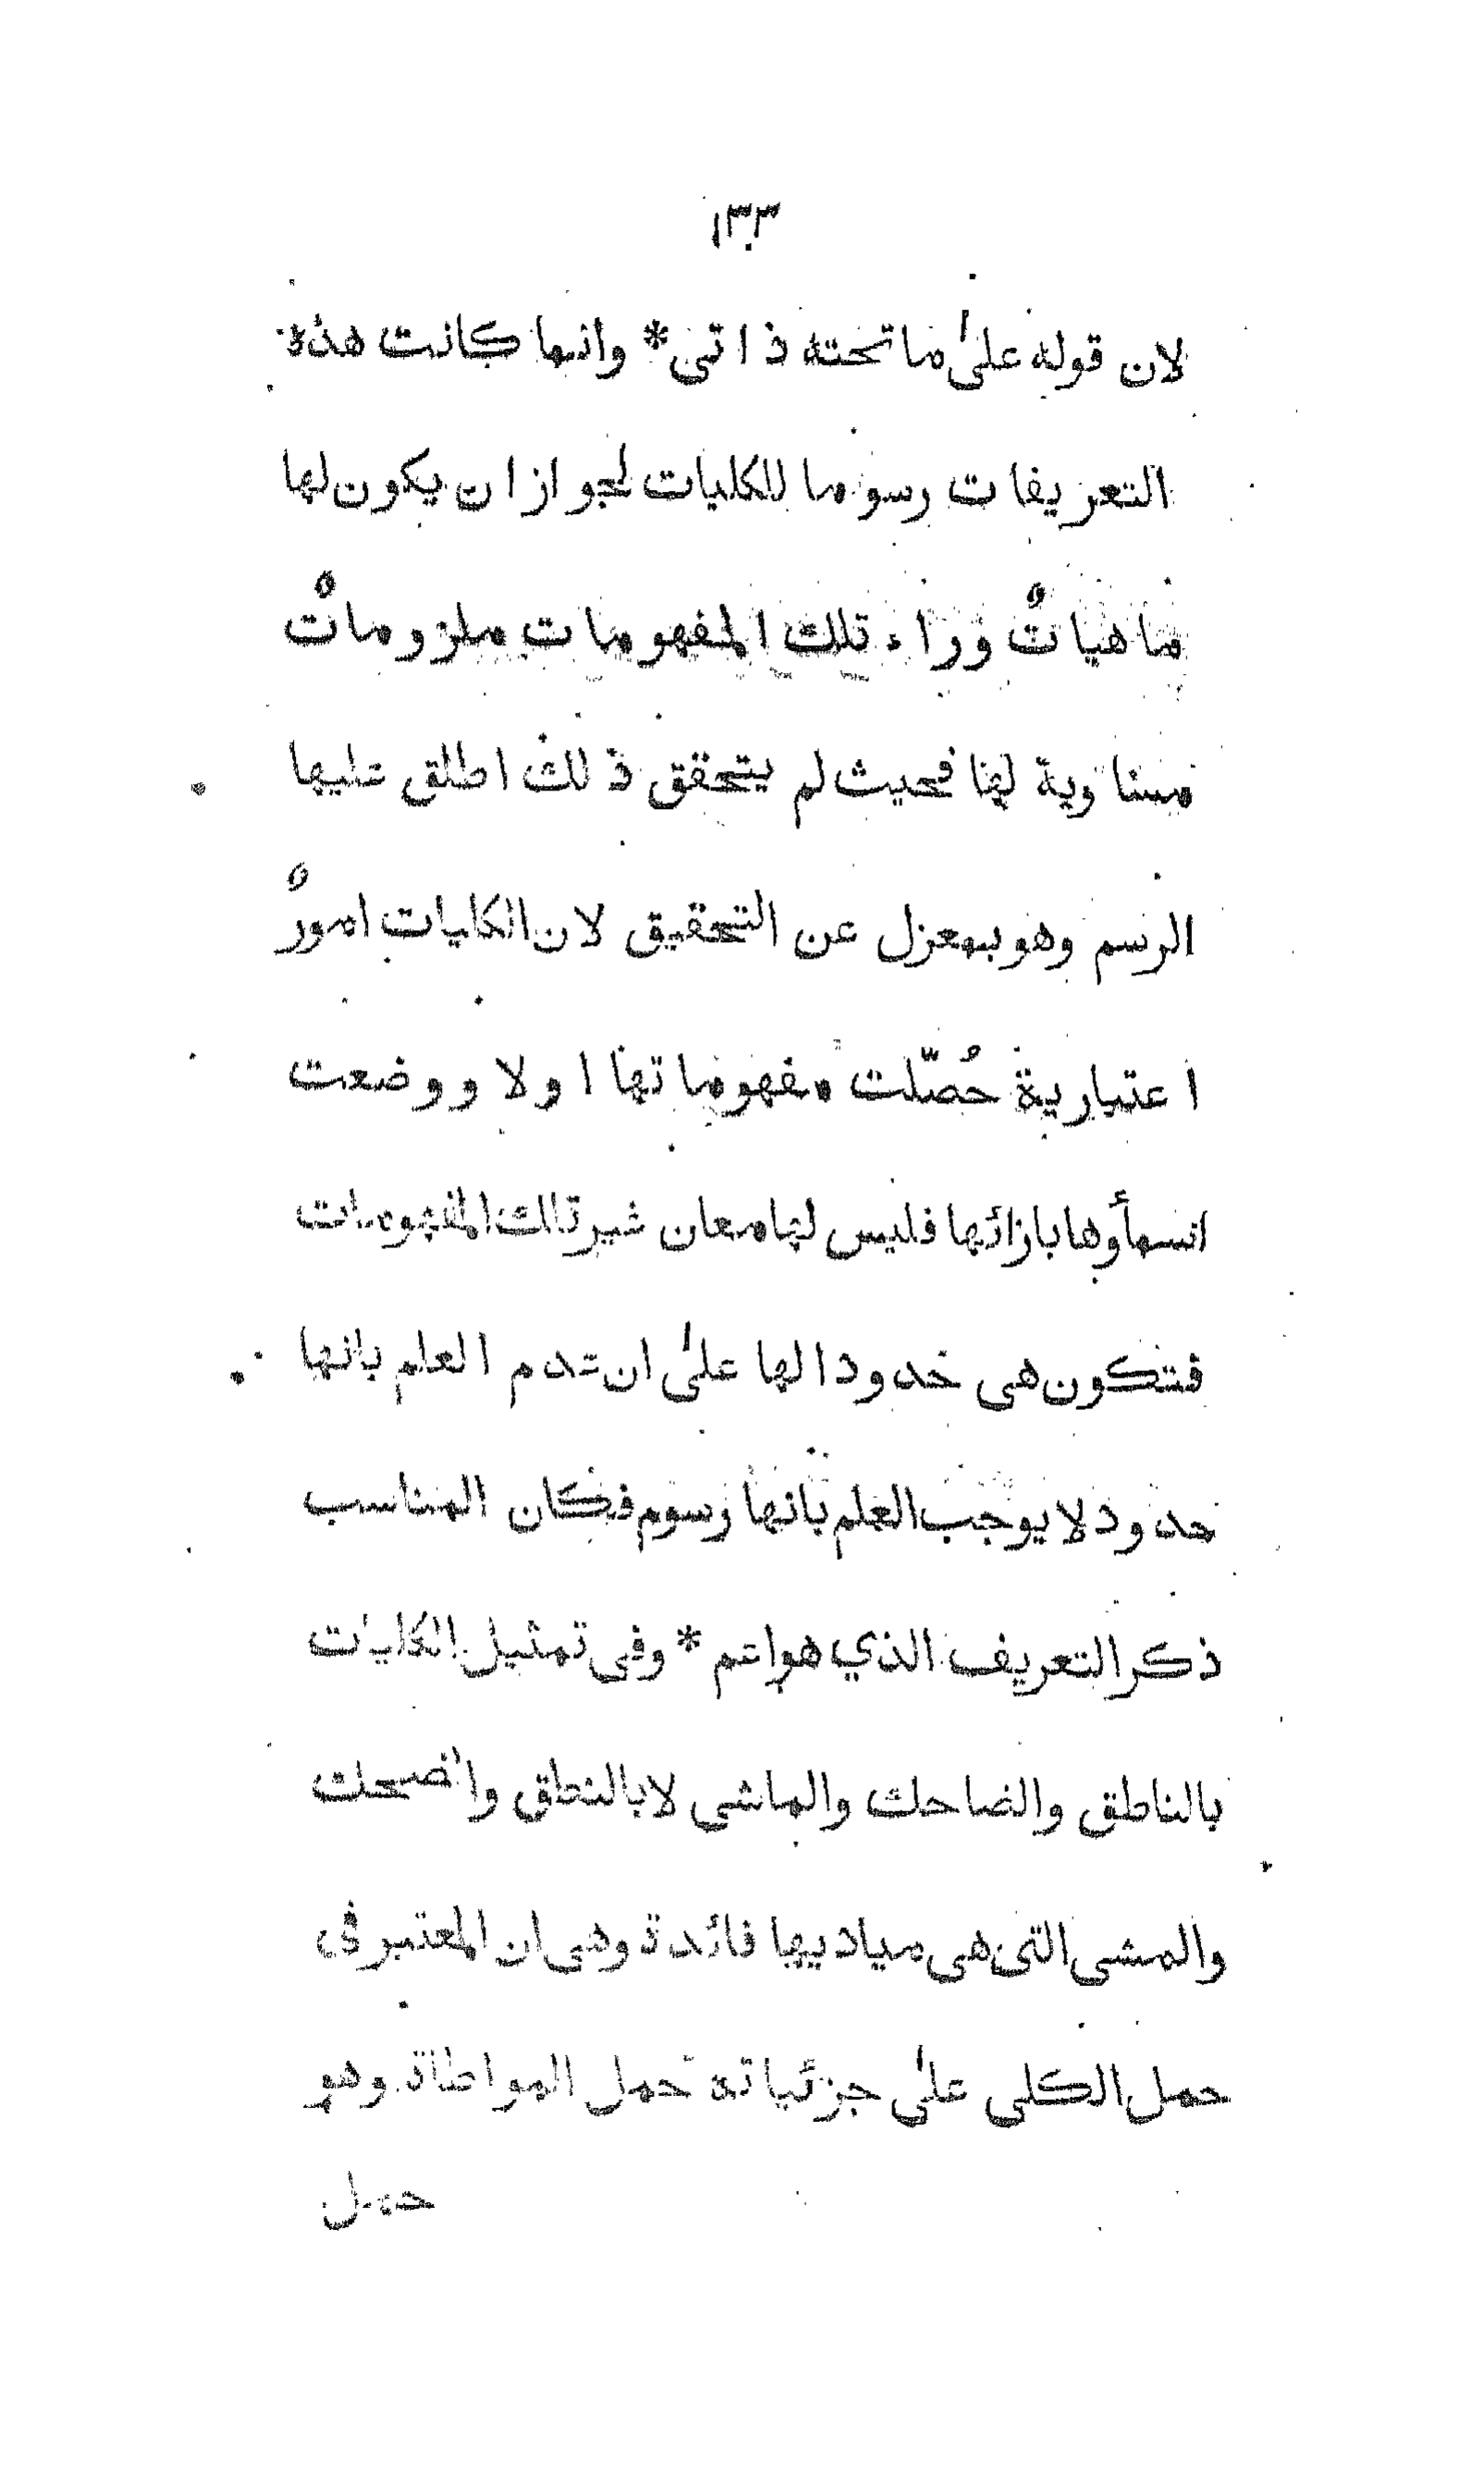 ١٣٣
لان قوله علىٰ ما تحته ذاتى * وانما كانت هذه
التعريفات رسوما للكليات لجواز ان يكون لها
ماهياتٌ وراء تلك المفهومات ملزوماتٌ
مساوية لها فحيث لم يتحقق ذلك اطلق عليها
الرسم وهو بمعزل عن التحقيق لان الكليات امورٌ
اعتبارية حُصّلت مفهوماتها اولا ووضعت
اسمأوها بازائها فليس لها معان غير تلك المفهومات
فتكون هى حدودا لها علىٰ ان عدم العلم بانها
حدود لا يوجب العلم بانها رسوم فكان المناسب
ذكر التعريف الذي هو اعم * وفى تمثيل الكليات
بالناطق والضاحك والماشى لا بالنطق والضحك
والمشى التى هى مباديها فائدة وهى ان المعتبر فى
حمل الكلى علىٰ جزئياته حمل المواطاة وهو
حمل